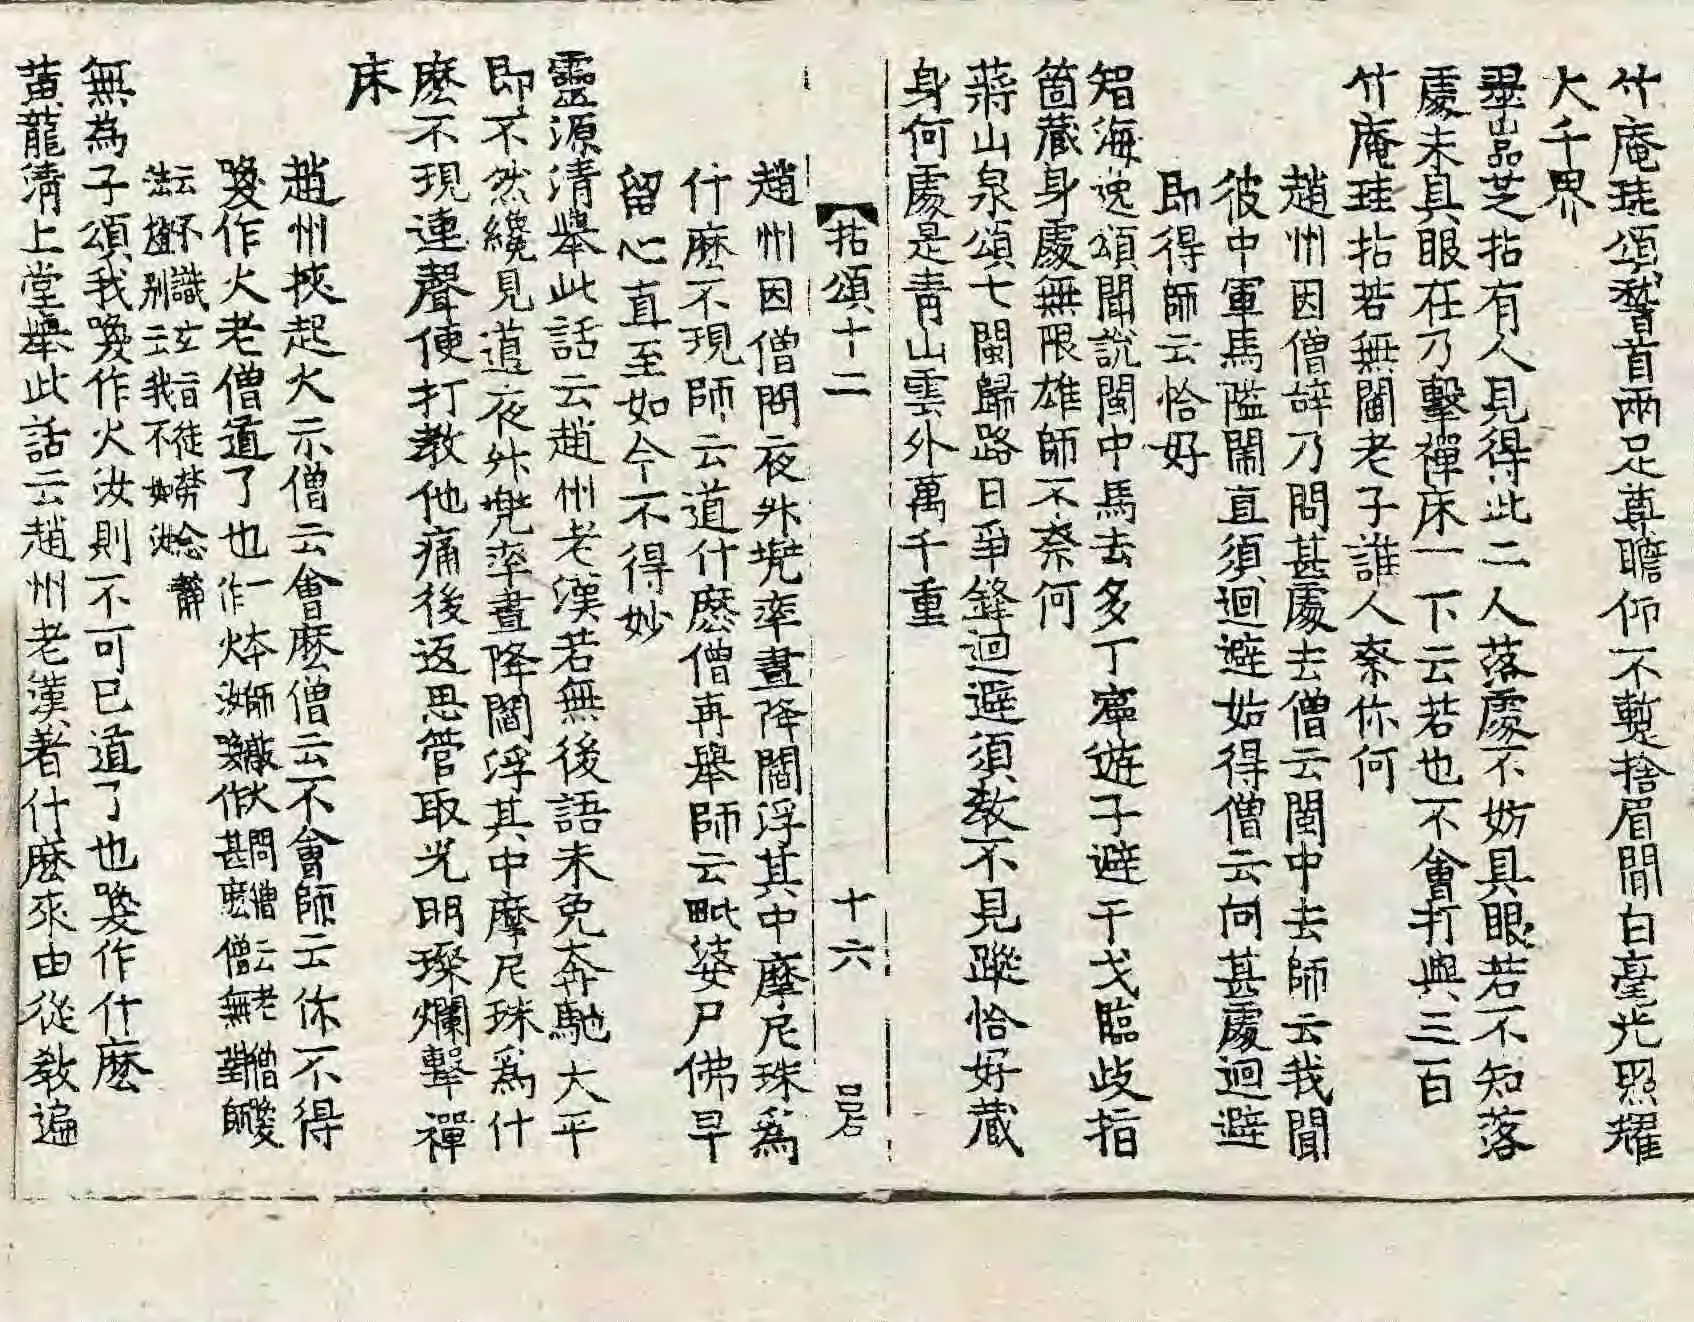 竹庵珪頌䭬首兩足尊瞻仰不蹔捨眉間白毫光照耀
大千界
翠嵓芝拈有人見得此二人落處不妨具眼若不知落
處未具眼在乃擊禪床一下云若也不會打與三百
竹庵珪拈若無閻老子誰人奈你何
趙州因僧辞乃問甚處去僧云閩中去師云我聞
彼中軍馬隘鬧直須迴避始得僧云向甚處迴避
即得師云恰好
智海逸頌聞說閩中馬去多丁寧遊子避干戈臨歧指
箇蔵身處無限雄師不柰何
蔣山泉頌七閩歸路日爭鋒迴避須教不見蹤恰好蔵
身何處是靑山雲外萬千重
拈頌十二 十六
趙州因僧問夜外兠率晝降閻浮其中摩尼珠爲
什麽不現師云道什麽僧再舉師云毗婆尸佛早
留心直至如今不得妙
靈源清舉此話云趙州老漢若無後語未免奔馳大平
即不然纔見道夜外兠率晝降閻浮其中摩尼珠爲什
麽不現連聲便打教他痛後返思管取光明璨爛擊禪
床
趙州挾起火示僧云會麽僧云不會師云你不得
喚作火老僧道了也一本師敲火問僧云老僧喚
作火汝喚作甚麽僧無對師
云不識玄旨徒勞念靜
法燈別云我不如汝
無為子頌我喚作火汝則不可已道了也喚作什麽
黃龍清上堂舉此話云趙州老漢著什麽來由從教遍